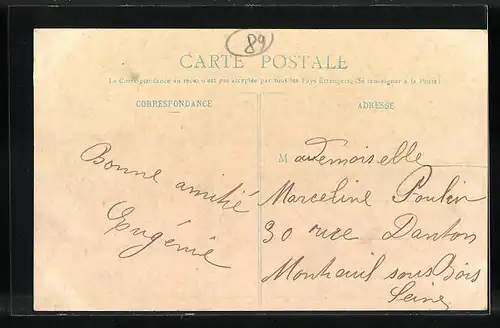 89
CARTE POSTALE
La Correspondance au recto n'est pas acceptée par tous les Pays Étrangers. (Se renseigner à la Poste)
CORRESPONDANCE
ADRESSE
Bonne amitié
Eugénie
Mademoiselle
Marceline Poulin
30 rue Danton
Montreuil sous Bois
Seine